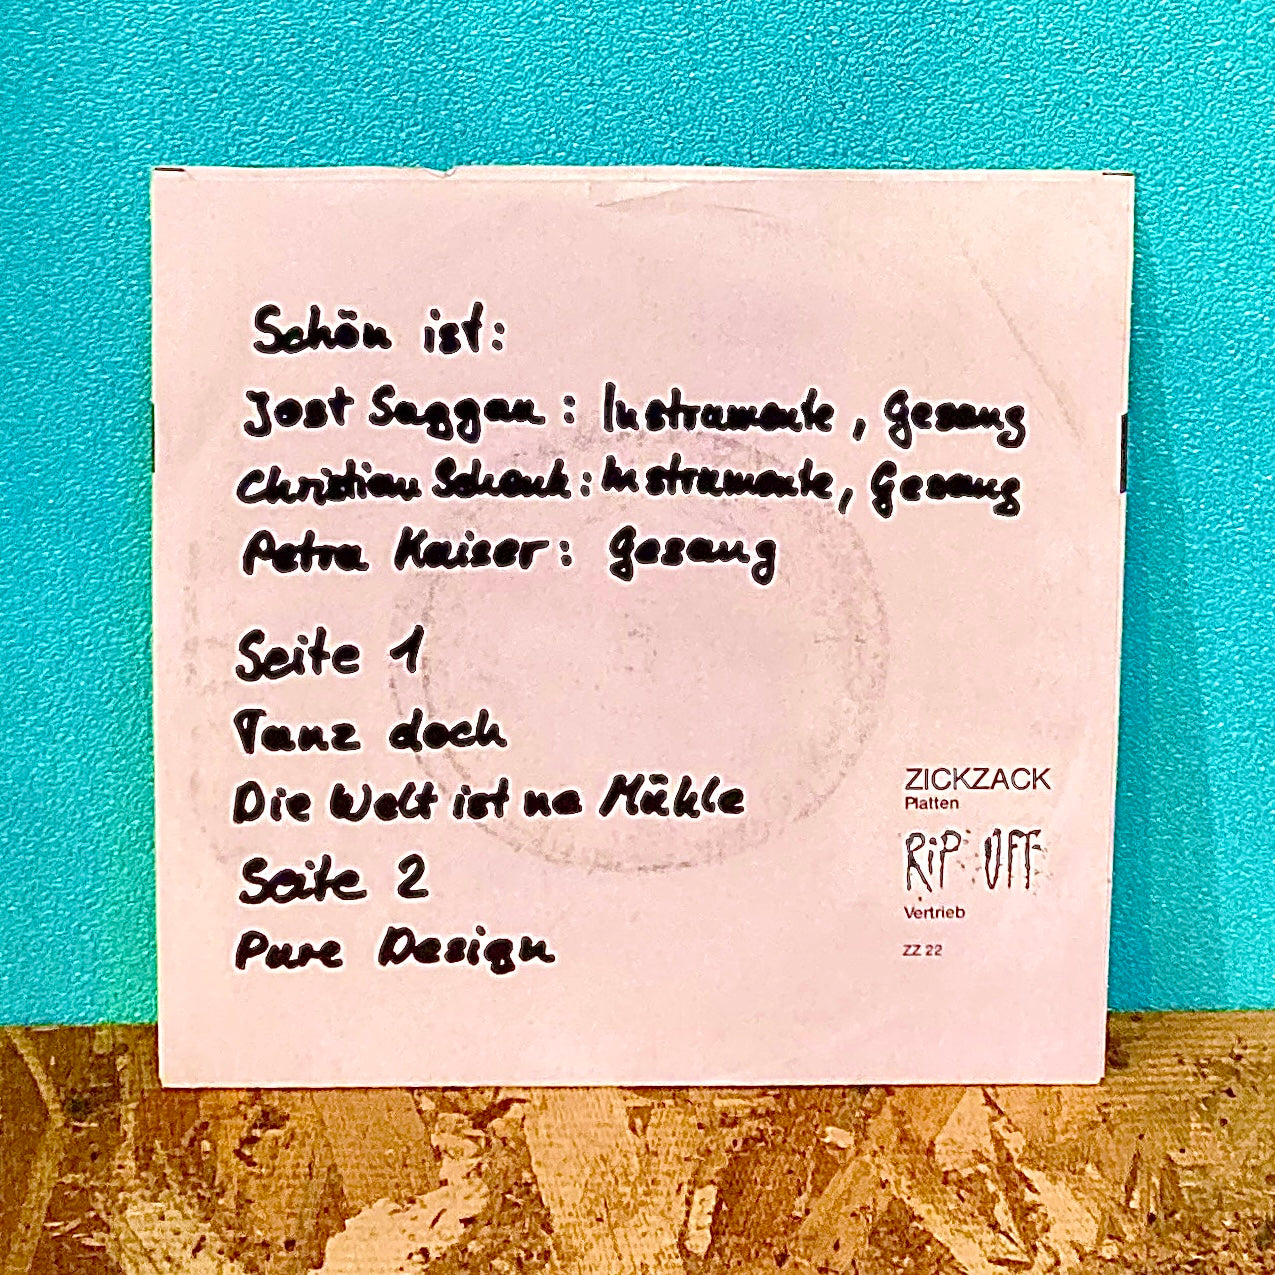 Schön ist:
Jost Suggan: Instrumente, Gesang
Christian Schenk: Instrumente, Gesang
Petra Kaiser: Gesang
Seite 1
Tanz doch
Die Welt ist ne Mühle
Seite 2
Pure Design
ZICKZACK
Platten
RiP OFF
Vertrieb
ZZ 22